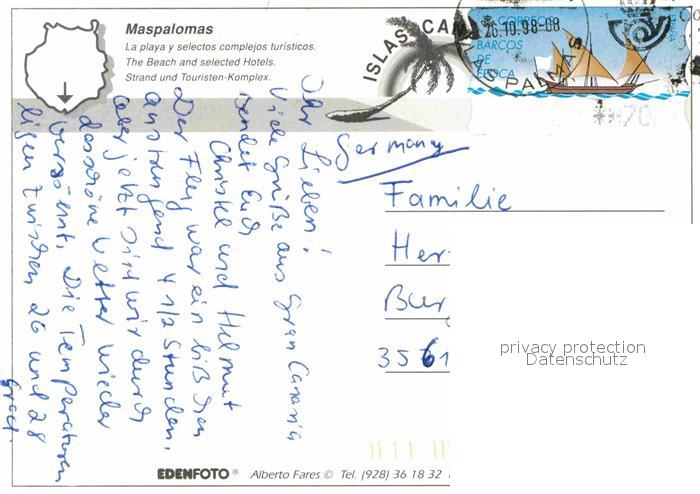 Maspalomas
La playa y selectos complejos turísticos.
The Beach and selected Hotels.
Strand und Touristen-Komplex.
ISLAS CAN
26.10.98-08
LAS PALMAS
CORREOS
BARCOS
DE
EPOCA
ESPAÑA
Ihr Lieben!
Viele Grüße aus Gran Canaria
sendet Euch
Christel und Helmut
Der Flug war ein bißchen
anstrengend 4 1/2 Stunden,
aber jetzt sind wir durch
das schöne Wetter wieder
versöhnt. Die Temperaturen
liegen zwischen 26 und 28
Grad.
Germany
Familie
Her
Burg
3561
privacy protection
Datenschutz
EDENFOTO® Alberto Fares © Tel. (928) 36 18 32